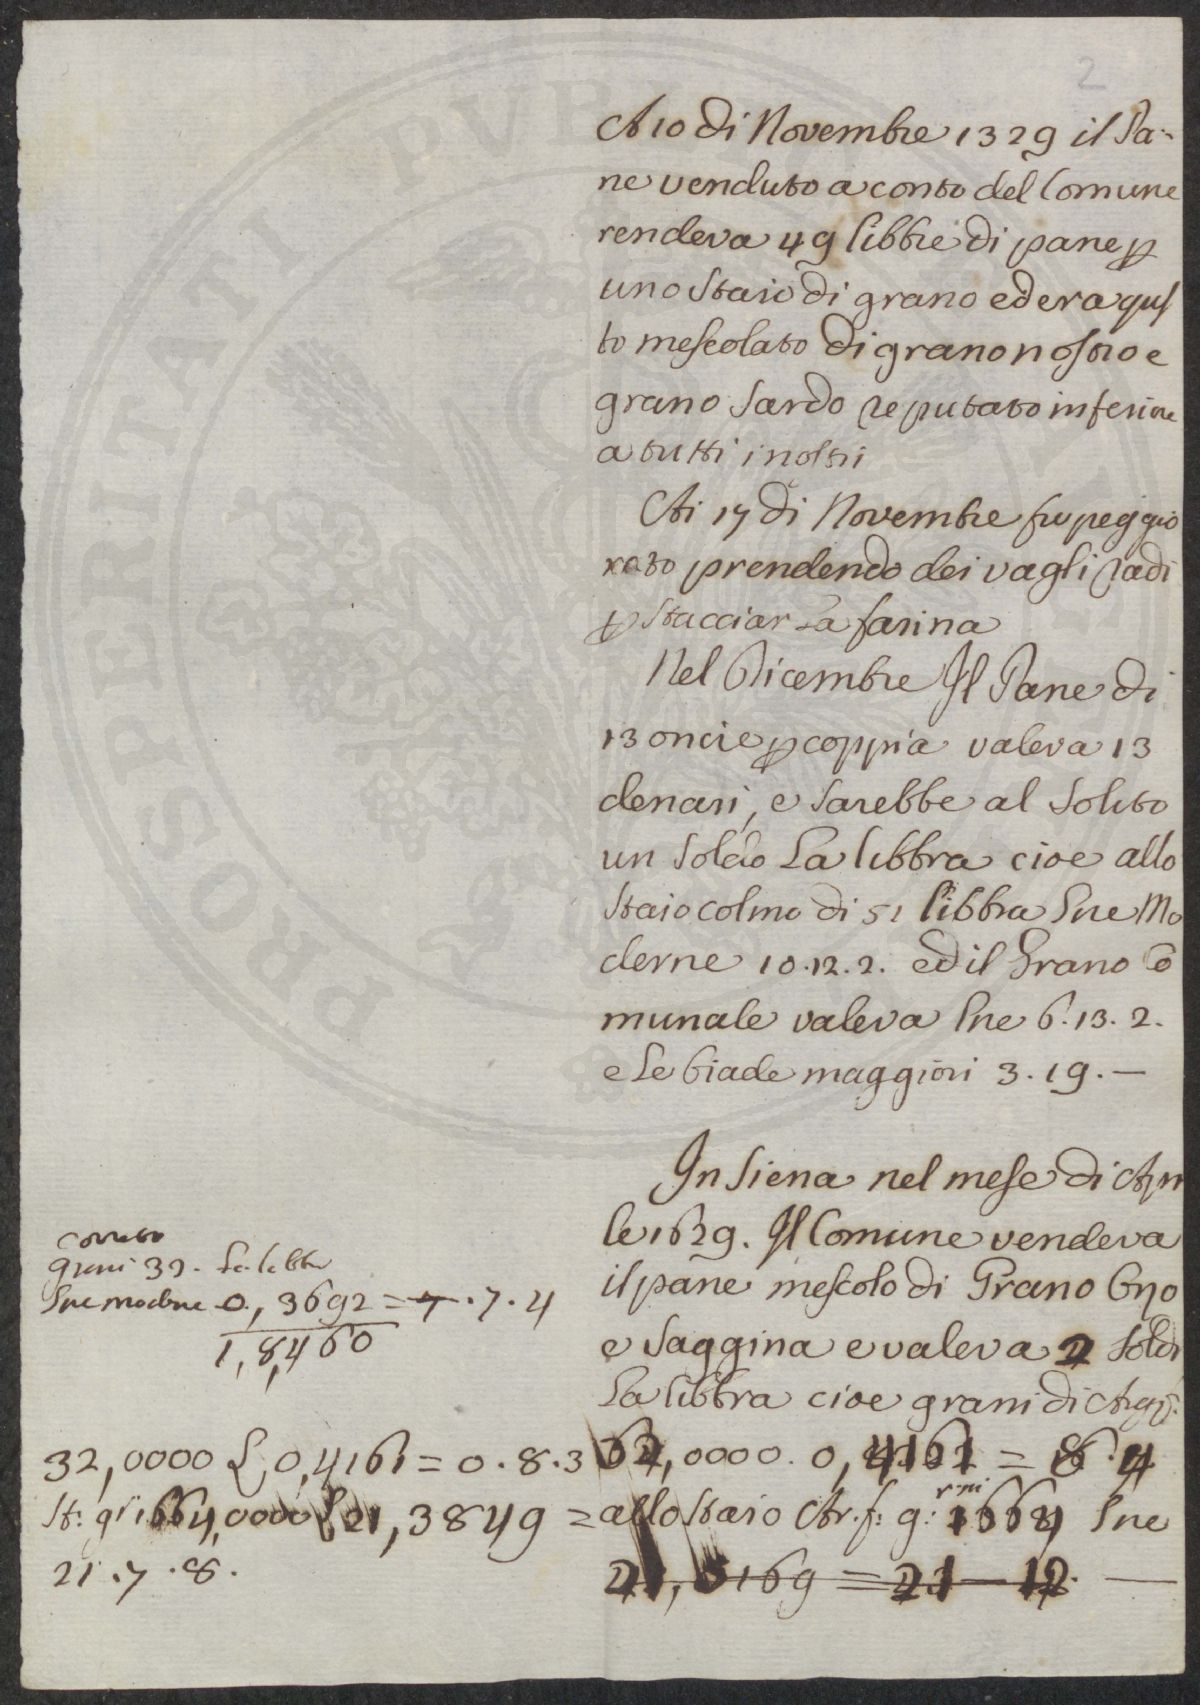 2
A 10 di Novembre 1329 il Pa-
ne venduto a conto del Comune
rendeva 49 libbre di pane p
uno Staio di grano ed era ques
to mescolato di grano nostro e
grano Sardo reputato inferiore
a tutti i nostri
Ai 17 di Novembre fu peggio
rato prendendo dei vagli radi
p Stacciar La farina
Nel Dicembre Il Pane di
13 oncie p coppia valeva 13
denari, e Sarebbe al Solito
un Soldo La libbra cioe allo
Staio colmo di 51 libbra Lire Mo
derne 10.12.2. ed il Grano Co
munale valeva lire 6.13.2.
e Le biade maggiori 3.19.—
In Siena nel mese di Apri
le 1629. Il Comune vendeva
il pane mescolo di Grano Orzo
e Saggina e valeva 2 Soldi
La libbra cioe grani di Arg:
, 0000. 0, =
allo Staio Ar. f: g: 1664 Lire
21, 5169 = 21 — 12. —
corretto
grani 32. La libbra
Lire moderne 0, 3692 = 7.7.4
1,8,460
32,0000 L 0,4161 = 0.8.3
St: gri 1664,0000 L 21,3849 =
21.7.8.
PROSPERITATI PVBLICAE